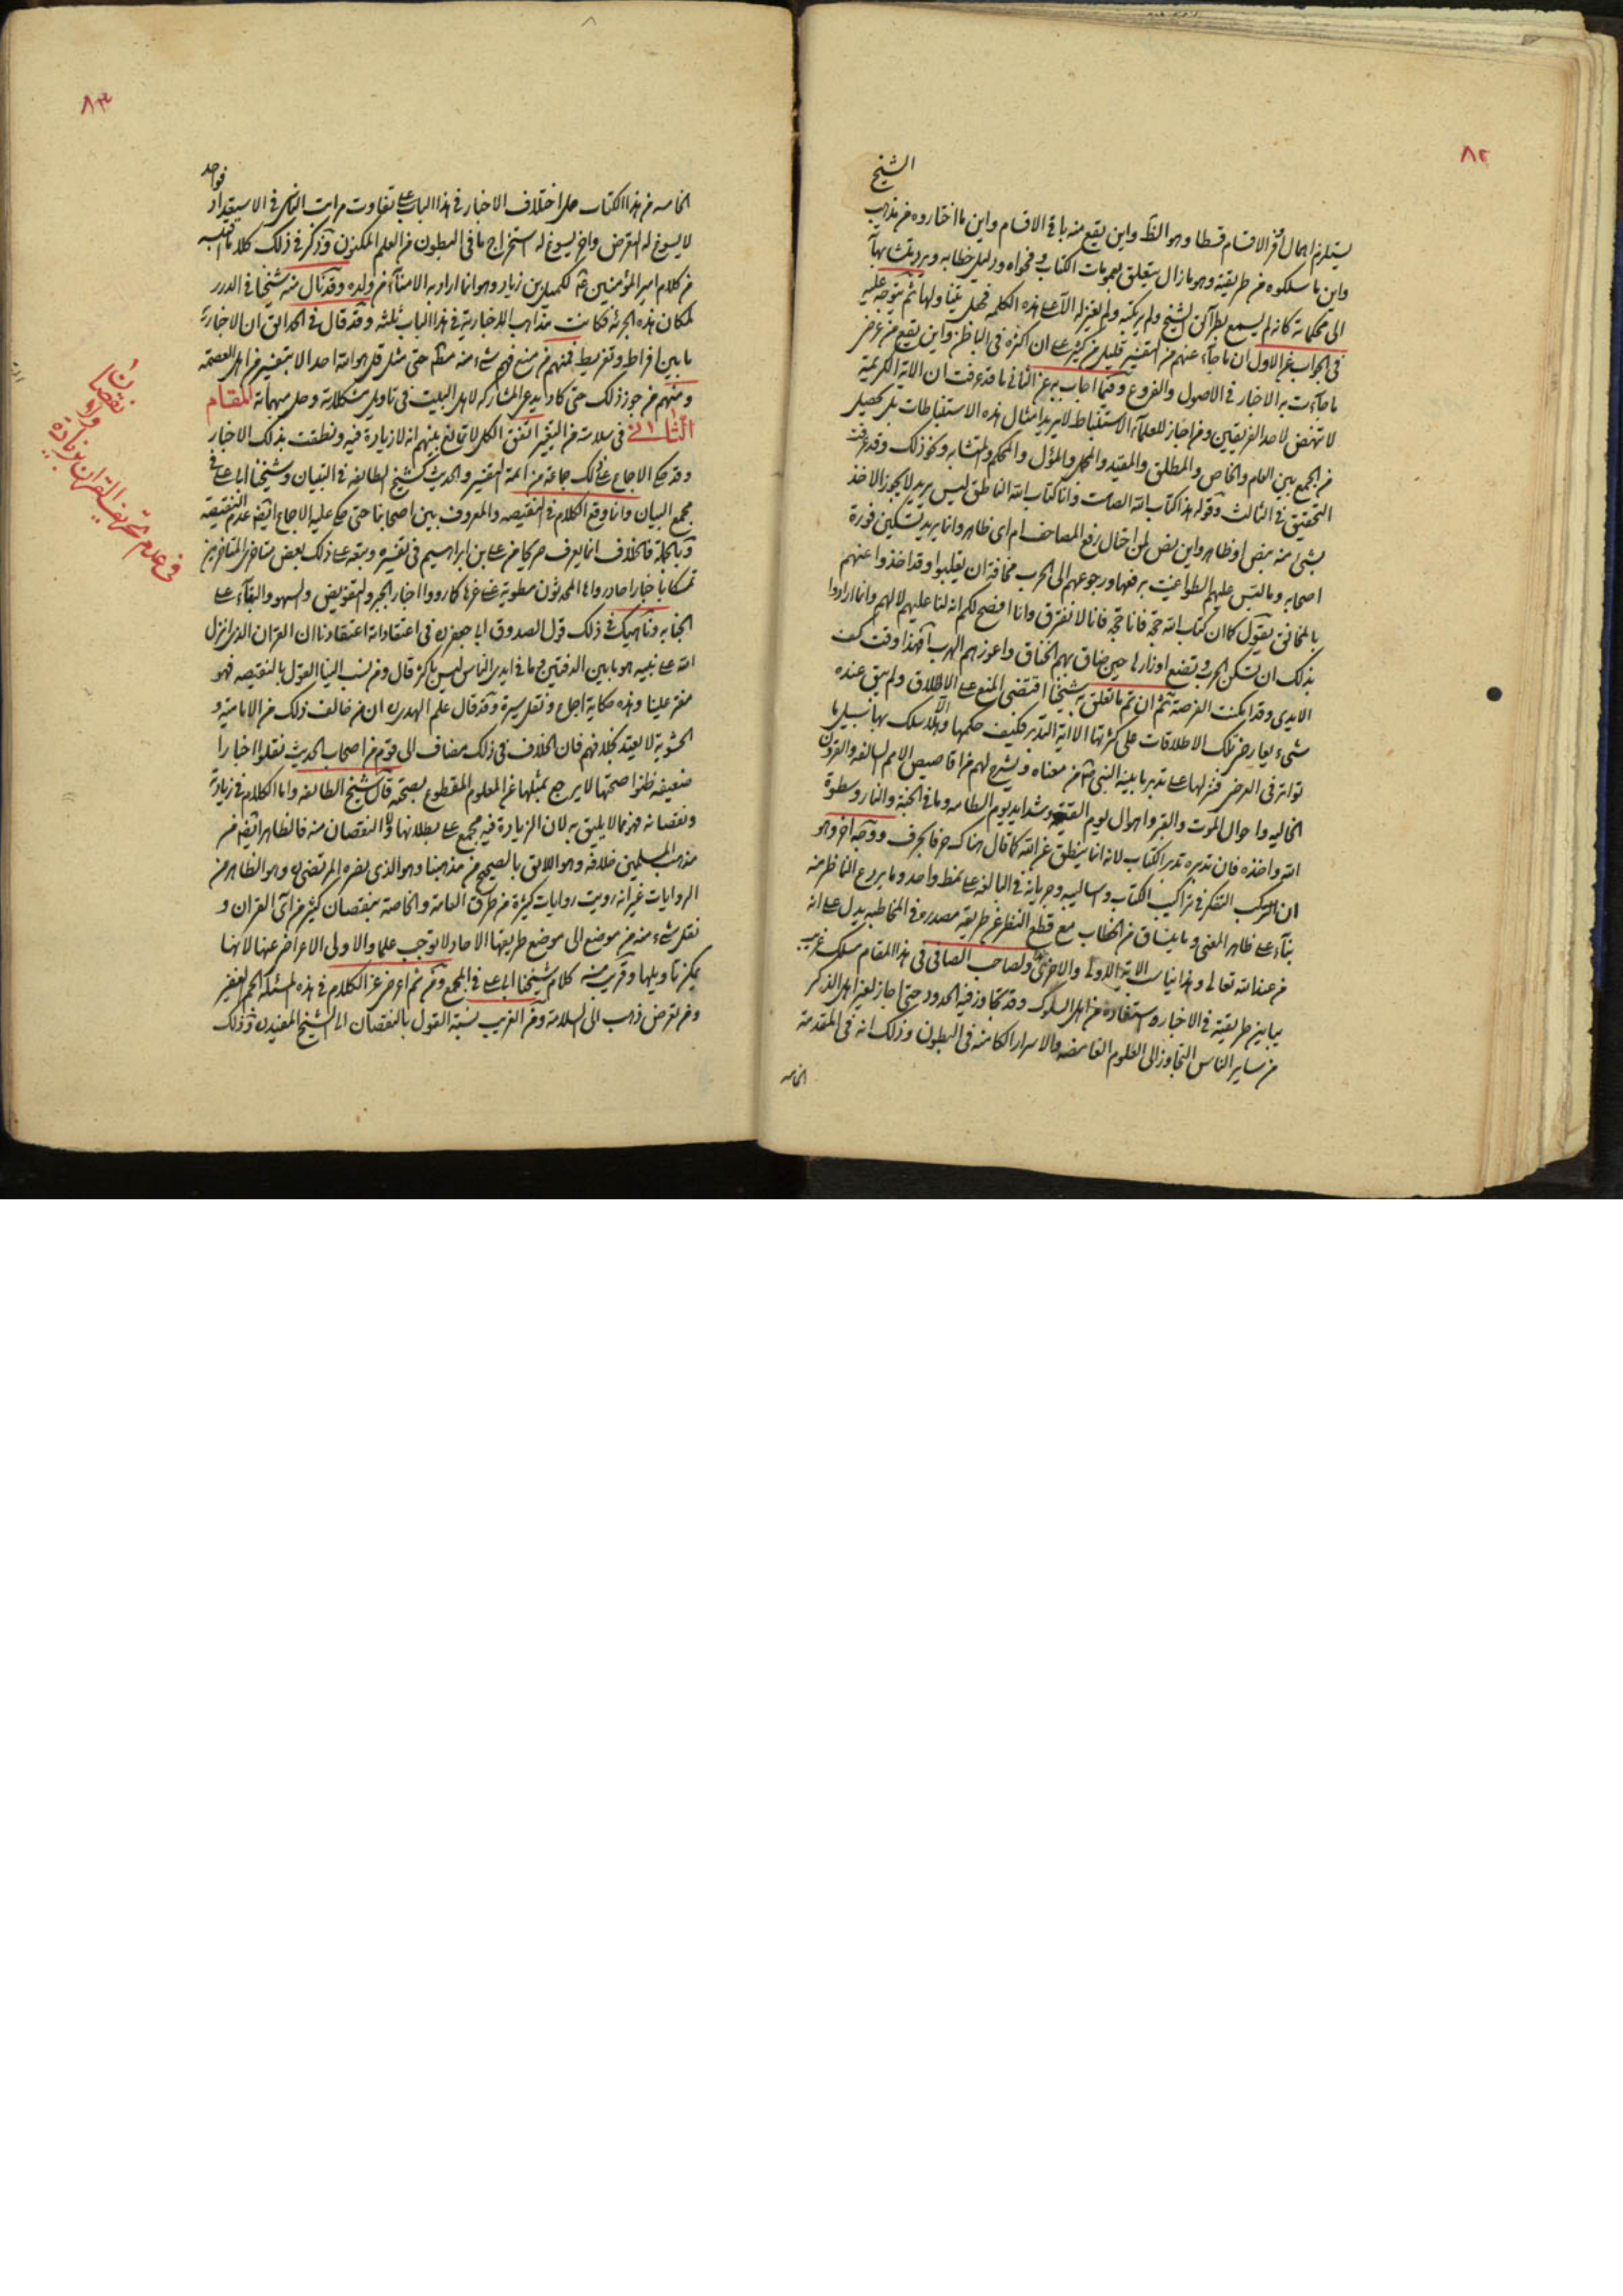 ٨٢
الشيخ
يستلزم اهمال الاقسام قسطا وهو الظ واين يقع منه باقى الاقسام واين ما اختاروه من مذهب
واين ما سلكوه من طريقته وهو ما زال يتعلق بعمومات الكتاب وفحواه ودليل خطابه ويرد بها
الى محكماته كانه لم يسمع الشيخ ولم هذه الكلمة فهل يتناولها ثم يتوجه عليه
فى الجواب عن الاول ان ما جاء عنهم من التفسير قليل من كثير على ان اكثره فى الباطن واين يقع من عرض
ما جاءت به الاخبار فى الاصول والفروع وفيما اجاب به عن الثانى ما قد عرفت ان الاية الكريمة
لا تنهض لاحد الفريقين ومن اجاز للعلماء الاستنباط لا يريد امثال هذه الاستنباطات بل تحصيل
من الجمع بين العام والخاص والمطلق والمقيد والمجمل والمؤل والمحكم والمتشابه ونحو ذلك وقد عرفت
التحقيق فى الثالث وقوله هذا كتاب الله الصامت وانا كتاب الله الناطق ليس يريد لا يجوز الاخذ
بشئ منه بنص او ظاهر واين نص لمن اختال رفع المصاحف ام اى ظاهر وانما يريد تسكين فورة
اصحابه وما التبس عليهم الطواغيت برفعها ورجوعهم الى الحرب مخافة ان يغلبوا وقد اخذوا عنهم
بالمخانق يقول كما ان كتاب الله حجة فانا حجة فانا لا نفترق وانا افصح لكم انه لنا عليهم لا لهم وانما ارادوا
بذلك ان تسكن الحرب وتضع اوزارها حين ضاق بهم الخناق واعوزهم الهرب افهذا وقت كف
الايدى وقد امكنت الفرصة ثم ان تم ما تعلق به شيخنا اقتضى المنع على الاطلاق ولم يبق عنده
شىء يعارض تلك الاطلاقات على كثرتها الا اية التدبر فكيف حكمها والا سلك بها سبيل ما
تواتر فى العرض فنزلها على تدبر ما بينه النبى من معناه وشرح لهم من اقاصيص الامم السالفه والقرون
الخاليه واحوال الموت والقبر واهوال يوم القيمة وشدايد يوم الطامه وما فى الجنة والنار وسطوة
الله واخذه فان تدبره تدبر الكتاب لانه انما ينطق عن الله كما قال هناك حرفا بحرف ووجه اخر وهو
ان التفكر فى تراكيب الكتاب واساليبه وجريانه فى البالغه على نمط واحد وما يردع الناظر منه
بناء على ظاهر المعنى وما ينساق من الخطاب مع قطع النظر عن طريقة مصدره فى المخاطبه يدل على انه
من عند الله تعالى وهذا يناسب الاية الاولى والاخرى ولصاحب الصافى فى هذا المقام مسلك غريب
يباين طريقته فى الاخبار استفاده من اهل السلوك وقد تجاوز فيه الحدود حتى اجاز لغير اهل الذكر
من ساير الناس التجاوز الى العلوم الغامضه والاسرار الكامنه فى البطون وذلك انه فى المقدمة
الخامسه
٨٣
فواحد
الخامسه من هذا الكتاب حمل اختلاف الاخبار فى هذا الباب على تفاوت مراتب الناس فى الاستعداد
لا يسوغ له التعرض واخر يسوغ له استخراج ما فى البطون من العلم المكنون وذكر فى ذلك كلاما
من كلام امير المؤمنين لكميل بن زياد وهو انما اراد به الامناء من ولده وقد نال منه شيخنا فى الدرر
لمكان هذه الجرئه فكانت مذاهب الاخبارية فى هذا الباب ثلثه وقد قال فى الحدائق ان الاخبارية
ما بين افراط وتفريط فمنهم من منع فهم شىء منه مطلقا حتى مثل قل هو الله احد الا بتفسير من اهل العصمة
ومنهم من جوز ذلك حتى كاد يدعى المشاركه لاهل البيت فى تاويل مشكلاته وحل مبهماته المقام
الثانى فى سلامته من التغير اتفق الكل لا تمانع بينهم انه لا زيادة فيه ونطقت بذلك الاخبار
وقد حكى الاجماع على ذلك جماعة من ائمة التفسير والحديث كشيخ الطائفه فى التبيان وشيخنا ابى على فى
مجمع البيان وانما وقع الكلام فى النقيصه والمعروف بين اصحابنا حتى حكى عليه الاجماع ايضا عدم النقيصة
وبالجملة فالخلاف انما يعرف صريحا من على بن ابراهيم فى تفسيره وتبعه على ذلك بعض متاخرى المتاخرين
تمسكا باخبار احاد رواها المحدثون مطوية على غرها كما رووا اخبار الجبر والتفويض والسهو والبقاء على
الجنابه وناهيك فى ذلك قول الصدوق ابى جعفر ره فى اعتقاداته اعتقادنا ان القران الذى انزل
الله على نبيه هو ما بين الدفتين وما فى ايدى الناس ليس باكثر قال ومن نسب الينا القول بالنقيصه فهو
مفتر علينا وهذه حكاية اجماع ونقل سيرة وقد قال علم الهدى ره ان من خالف ذلك من الامامية و
الحشوية لا يعتد بخلافهم فان الخلاف فى ذلك مضاف الى قوم من اصحاب الحديث نقلوا اخبارا
ضعيفه ظنوا صحتها لا يرجع بمثلها عن المعلوم المقطوع بصحته قال شيخ الطائفه واما الكلام فى زيادة
ونقصانه فهو مما لا يليق به لان الزيادة فيه مجمع على بطلانها واما النقصان منه فالظاهر ايضا من
مذهب المسلمين خلافه وهو اللايق بالصحيح من مذهبنا وهو الذى نصره المرتضى ره وهو الظاهر من
الروايات غير انه رويت روايات كثيرة من طرق العامة والخاصة بنقصان كثير من آى القران و
نقل شىء منه من موضع الى موضع طريقها الاحاد لا توجب علما والاولى الاعراض عنها لانها
يمكن تاويلها وقريب منه كلام شيخنا ابى على فى المجمع ومن ثم اعرض عن الكلام فى هذه المسئله الجم الغفير
ومن تعرض ذهب الى السلامة ومن الغريب نسبة القول بالنقصان الى الشيخ المفيد ره وذلك
فى عدم تحريف القران بزيادة
ونقصان